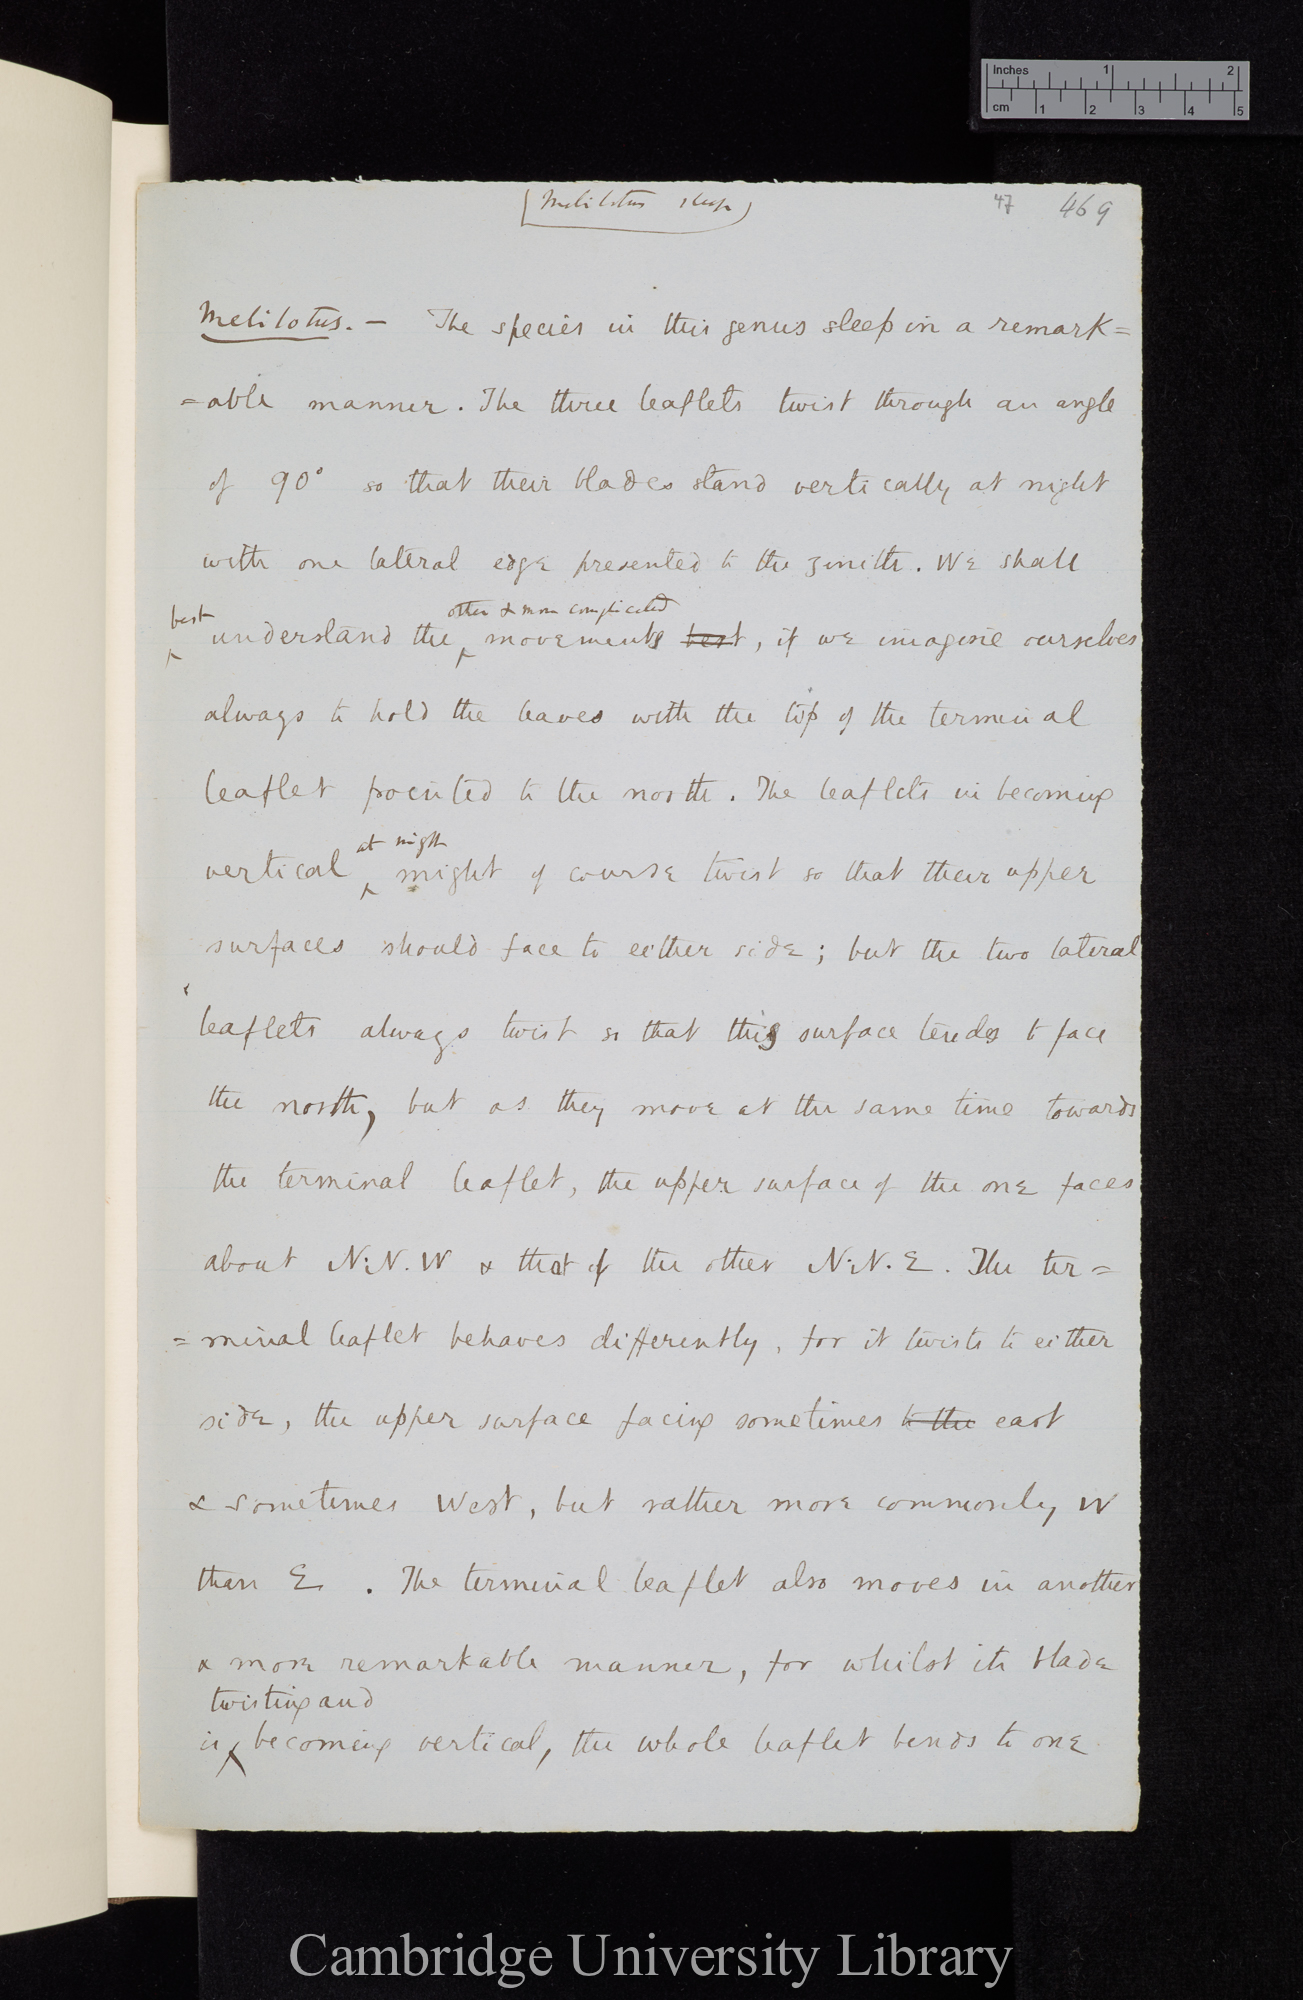 Inches 1 2
cm 1 2 3 4 5
(Melilotus sleep) 47 469
Melilotus. — The species in this genus sleep in a remark=
=able manner. The three leaflets twist through an angle
of 90° so that their blades stand vertically at night
with one lateral edge presented to the zenith. We shall
best other & more complicated
understand the movements best, if we imagine ourselves
always to hold the leaves with the tip of the terminal
leaflet pointed to the north. The leaflets in becoming
at night
vertical might of course twist so that their upper
surfaces should face to either side; but the two lateral
leaflets always twist so that this surface tends to face
the north, but as they move at the same time towards
the terminal leaflet, the upper surface of the one faces
about N.N.W & that of the other N.N.E. The ter=
=minal leaflet behaves differently, for it twists to either
side, the upper surface facing sometimes to the east
& sometimes West, but rather more commonly W
than E. The terminal leaflet also moves in another
& more remarkable manner, for whilst its blade
twisting and
is becoming vertical, the whole leaflet bends to one
Cambridge University Library